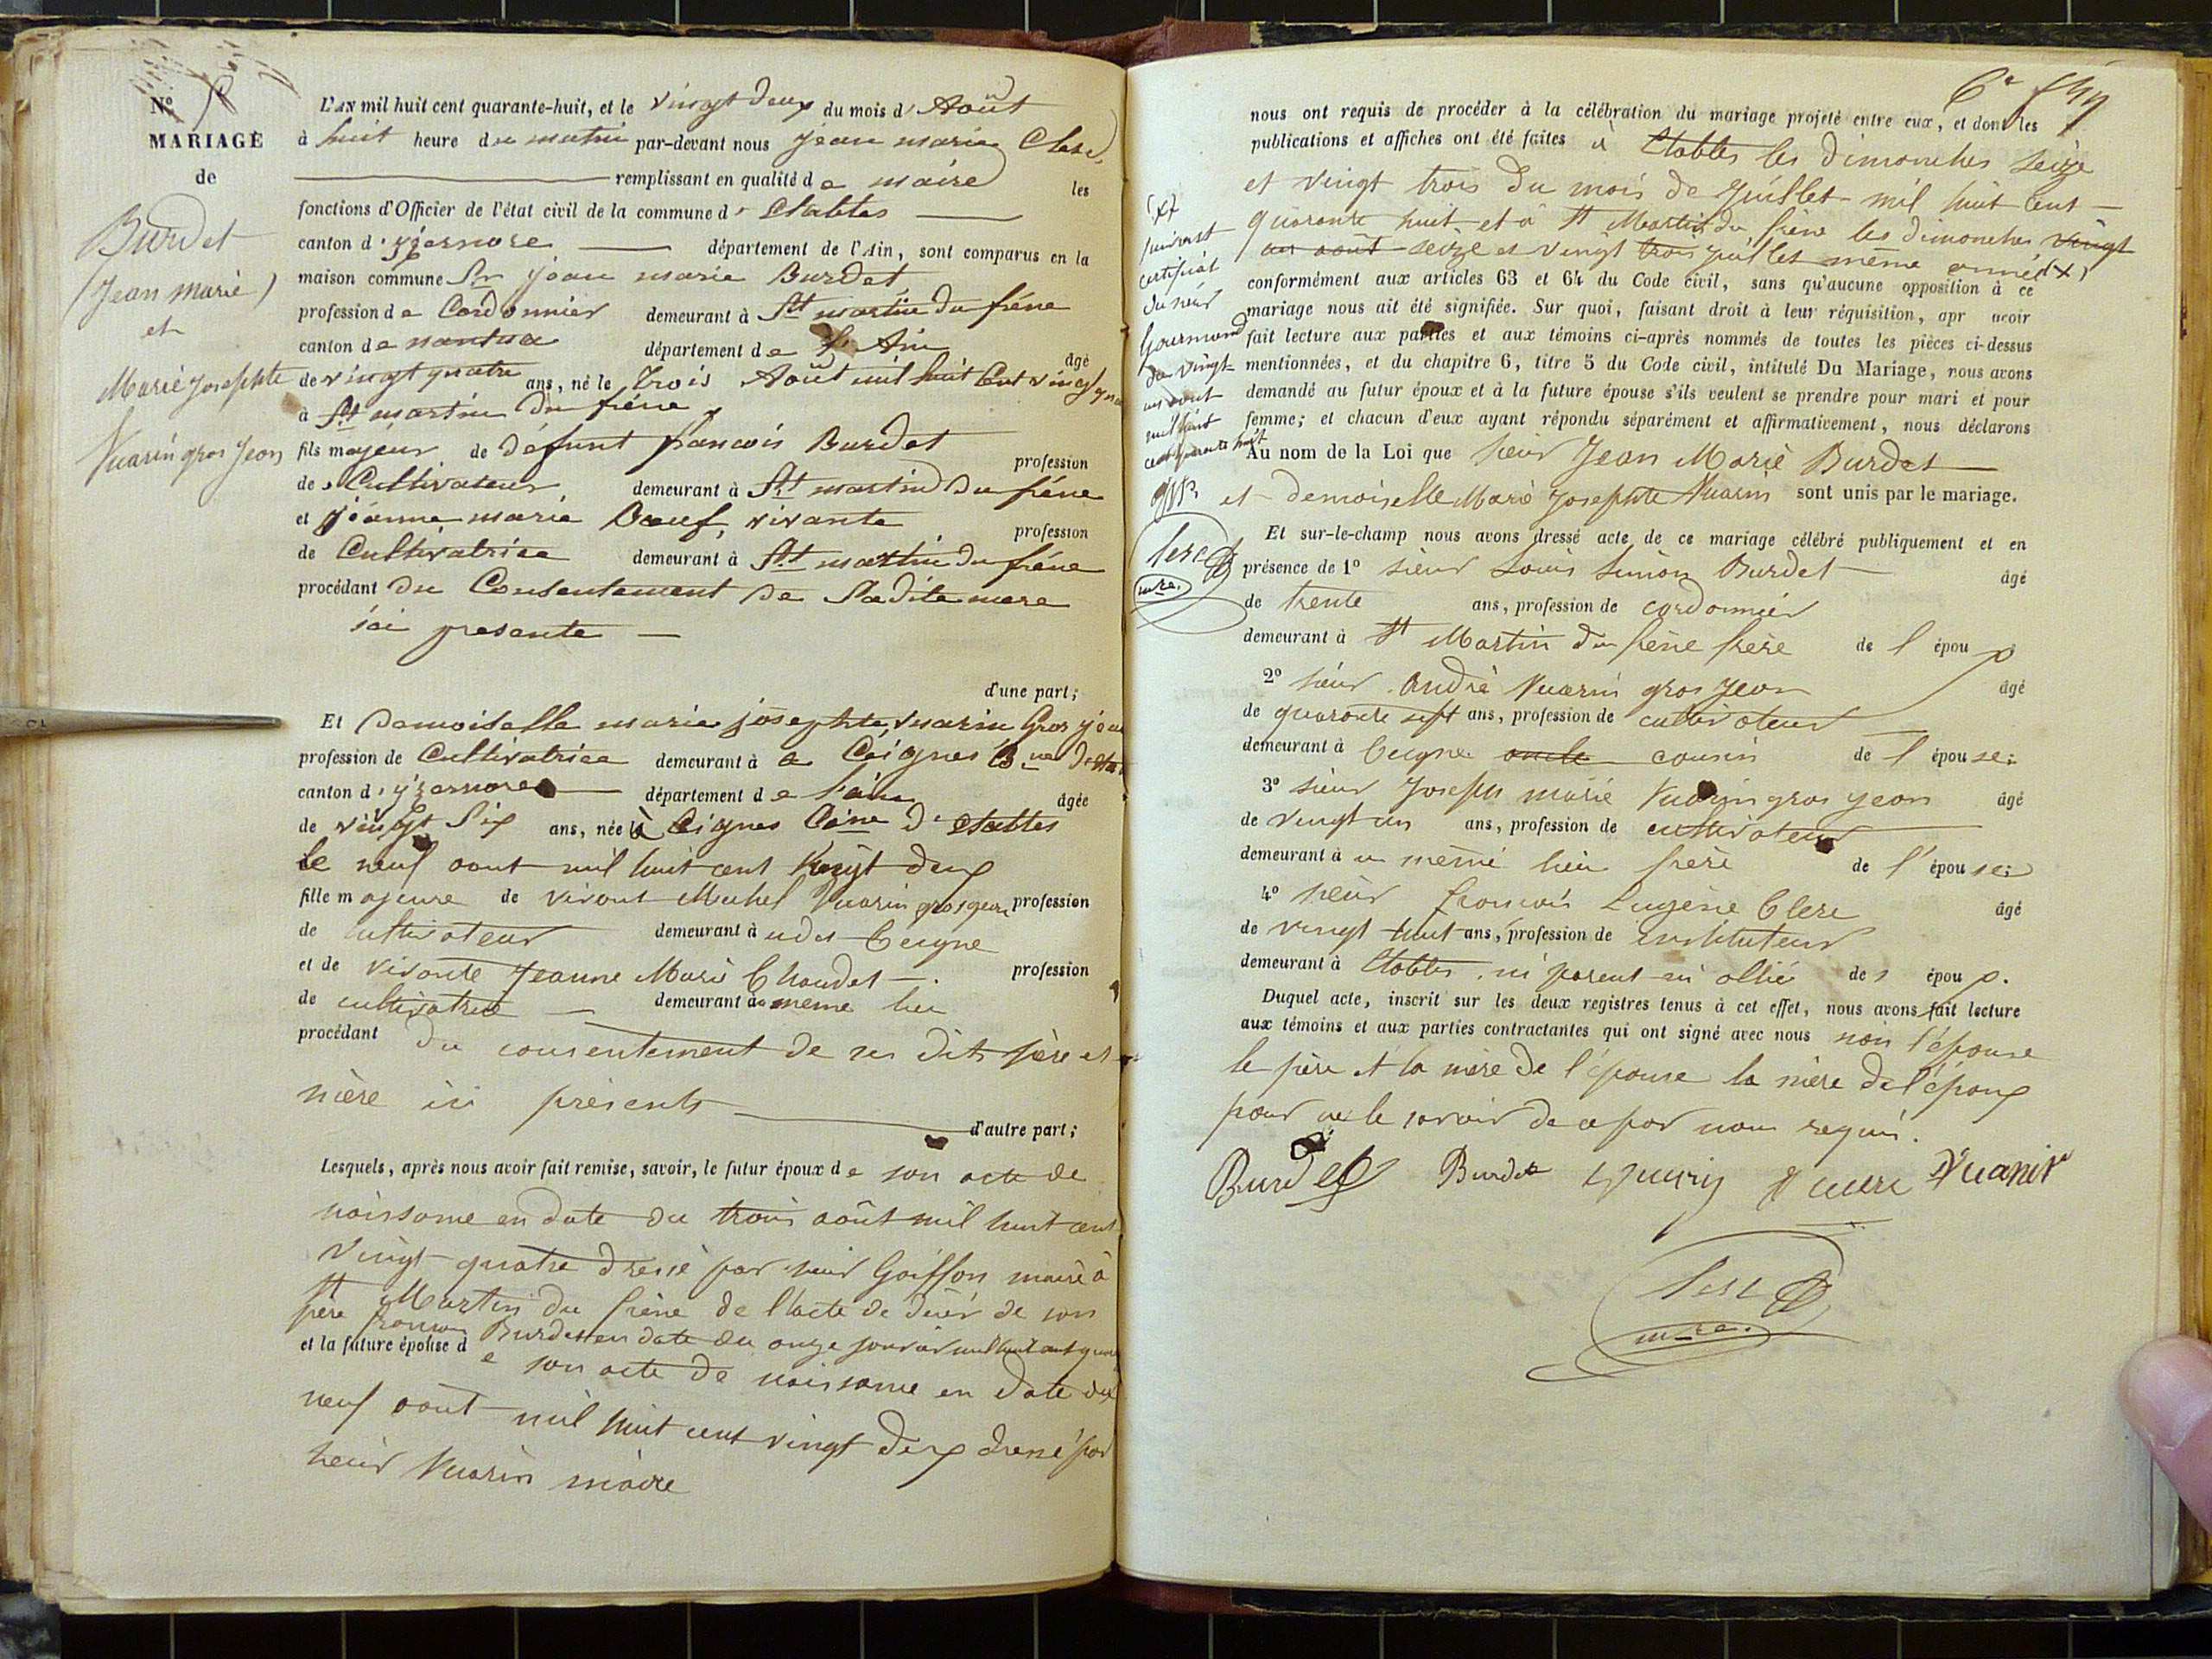 N° 8
MARIAGE
de
Burdet
(Jean marie)
et
Marie Josephte
Vuarin gros Jean
L'AN mil huit cent quarante-huit, et le vingt deux du mois d'Août
à huit heure du matin par-devant nous Jean marie Clerc,
remplissant en qualité de maire les
fonctions d'Officier de l'état civil de la commune d'Etables
canton d'yzernore département de l'Ain, sont comparus en la
maison commune Sr jean marie Burdet
profession de Cordonnier demeurant à St martin du frêne
canton de nantua département de l'Ain âgé
de vingt quatre ans, né le trois Août mil huit Cent vingt
à St martin du frêne
fils majeur de défunt francois Burdet profession
de Cultivateur demeurant à St martin du frêne
et jéanne marie Bœuf, vivante profession
de Cultivatrice demeurant à St martin du frêne
procédant du Consentement de Sadite mere
ici presente
d'une part;
Et Demoiselle marie josephte, vuarin Gros jean
profession de Cultivatrice demeurant à a Ceignes
canton d'yzernore département de l'ain âgée
de vingt Six ans, née à Ceignes Cne d'Etables
le neuf aout mil huit cent vingt deux
fille majeure de vivant Michel Vuarin gros jean profession
de cultivateur demeurant à udit Ceigne
et de vivante Jeanne Marie Chaudet profession
de cultivatrice demeurant au meme lieu
procédant du consentement de ses dits père et
mère ici présents
d'autre part;
Lesquels, après nous avoir fait remise, savoir, le futur époux de son acte de
naissance en date du trois août mil huit cent
vingt quatre dressé par sieur Goiffon maire à
St Martin du frêne de l'acte de décès de son
père francois Burdet en date du onze janvier mil huit cent
et la future épouse de son acte de naissance en date du
neuf août mil huit cent vingt deux dressé par
sieur Vuarin maire
nous ont requis de procéder à la célébration du mariage projeté entre eux, et dont les
publications et affiches ont été faites à Etables les dimanches seize
et vingt trois du mois de Juillet mil huit cent
quarante huit et à St Martin du frêne les dimanches vingt
un août seize et vingt trois juillet même année (x)
conformément aux articles 63 et 64 du Code civil, sans qu'aucune opposition à ce
mariage nous ait été signifiée. Sur quoi, faisant droit à leur réquisition, apr avoir
fait lecture aux parties et aux témoins ci-après nommés de toutes les pièces ci-dessus
mentionnées, et du chapitre 6, titre 5 du Code civil, intitulé Du Mariage, nous avons
demandé au futur époux et à la future épouse s'ils veulent se prendre pour mari et pour
femme; et chacun d'eux ayant répondu séparément et affirmativement, nous déclarons
Au nom de la Loi que sieur Jean Marie Burdet
et demoiselle Marie Josephte Vuarin sont unis par le mariage.
(x)
suivant
certificat
du sieur
Gourmand
du vingt
un aout
mil huit
cent quarante huit
Clerc
mre.
Et sur-le-champ nous avons dressé acte de ce mariage célébré publiquement et en
présence de 1° sieur Louis Simon Burdet âgé
de trente ans, profession de cordonnier
demeurant à St Martin du frêne frère de l époux
2° sieur André Vuarin gros Jean âgé
de quarante sept ans, profession de cultivateur
demeurant à Ceigne oncle cousin de l épouse;
3° sieur Joseph marie Vuarin gros jean âgé
de vingt un ans, profession de cultivateur
demeurant à u même lieu frère de l'épouse;
4° sieur francois Eugène Clerc âgé
de vingt huit ans, profession de instituteur
demeurant à Etables, ni parent ni allié des époux.
Duquel acte, inscrit sur les deux registres tenus à cet effet, nous avons fait lecture
aux témoins et aux parties contractantes qui ont signé avec nous non l'épouse
le père et la mère de l'épouse la mère de l'époux
pour ne le savoir de ce par nous requis.
Burdet Burdet Vuarin
Clerc
mre.